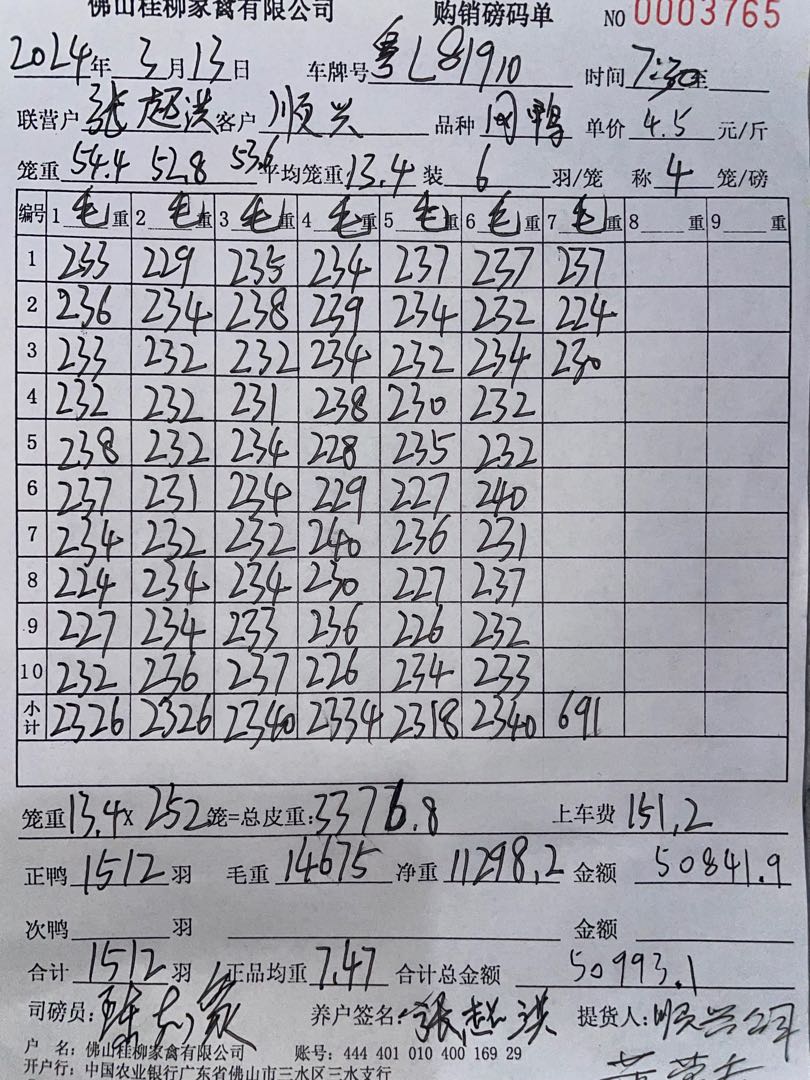 佛山桂柳家禽有限公司 购销磅码单 NO 0003765
2024年 3月13日 车牌号 粤L81910 时间 7:30至
联营户 张超洪 客户 顺兴 品种 肉鸭 单价 4.5 元/斤
笼重 54.4 52.8 53.6 平均笼重 13.4 装 6 羽/笼 称 4 笼/磅
编号 1 毛重 2 毛重 3 毛重 4 毛重 5 毛重 6 毛重 7 毛重 8 重 9 重
1 233 229 235 234 237 237 237
2 236 234 238 239 234 232 224
3 233 232 232 234 232 234 230
4 232 232 231 238 230 232
5 238 232 234 228 235 232
6 237 231 234 229 227 240
7 234 232 232 240 236 231
8 224 234 234 230 227 237
9 227 234 233 236 226 232
10 232 236 237 226 234 233
小计 2326 2326 2340 2334 2318 2340 691
笼重 13.4 × 252 笼=总皮重: 3376.8 上车费 151.2
正鸭 1512 羽 毛重 14675 净重 11298.2 金额 50841.9
次鸭 羽 金额
合计 1512 羽 正品均重 7.47 合计总金额 50993.1
司磅员: 养户签名: 张超洪 提货人: 顺兴公司
户 名: 佛山桂柳家禽有限公司 账号: 444 401 010 400 169 29
开户行: 中国农业银行广东省佛山市三水区三水支行